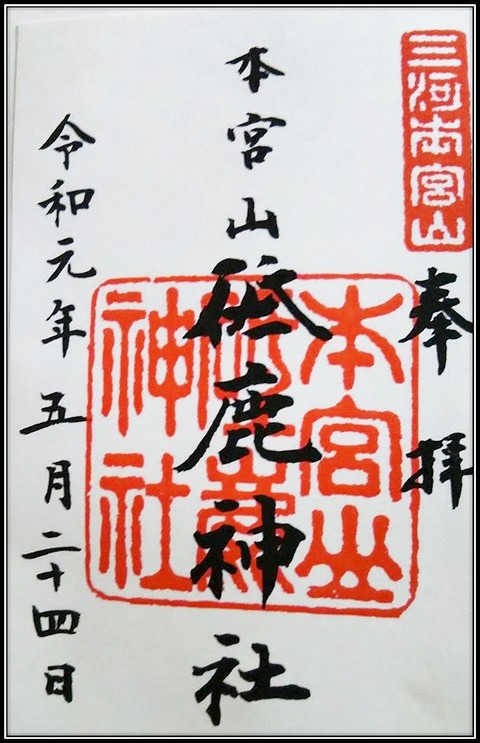 三河本宮山
奉拝
本宮山
砥鹿神社
本宮山
砥鹿
神社
令和元年五月二十四日